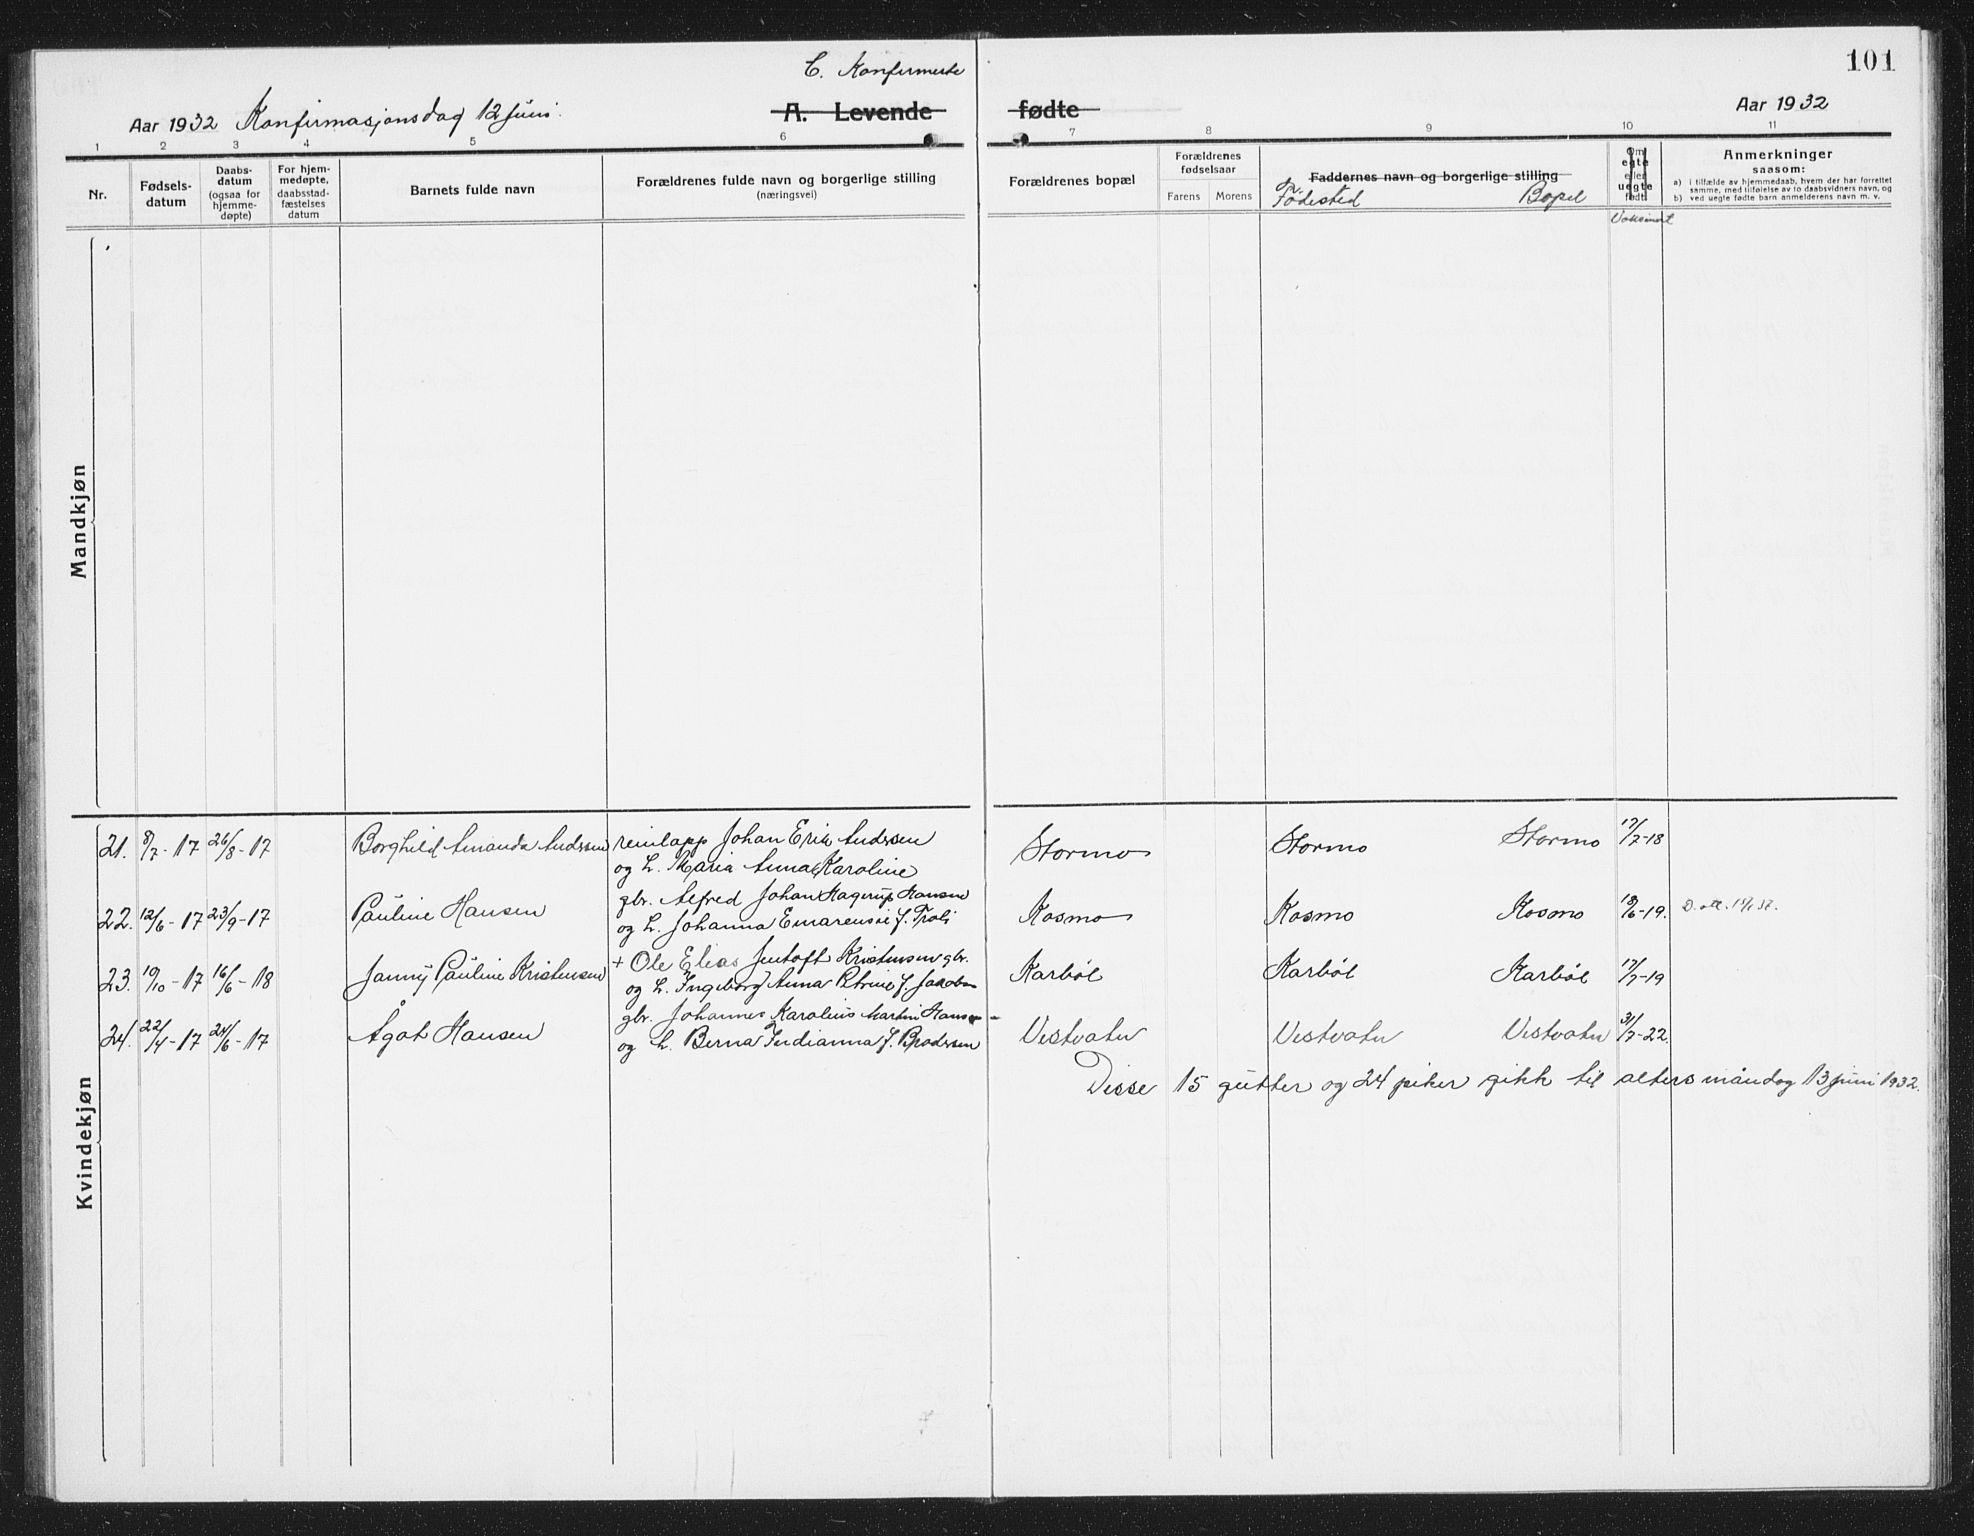 101
C. Konfirmerte
Aar 1932 Konfirmasjonsdag 12 juni.
A. Levende fødte
Aar 1932
1 2 3 4 5 6 7 8 9 10 11
Nr.
Fødsels-
datum
Daabs-
datum
(ogsaa for
hjemme-
døpte)
For hjem-
medøpte,
daabsstad-
fæstelses
datum
Barnets fulde navn
Forældrenes fulde navn og borgerlige stilling
(næringsvei)
Forældrenes bopæl
Forældrenes
fødselsaar
Farens Morens
Faddernes navn og borgerlige stilling
Fødested Bopel
Om
egte
eller
uegte
født
Anmerkninger
saasom:
a) i tilfælde av hjemmedaab, hvem der har forrettet
samme, med tilføielse av to daabsvidners navn, og
b) ved uegte fødte barn anmelderens navn m. v.
Mandkjøn
Kvindekjøn
21. 8/7-17 26/8-17 Borghild Amanda Andssen reinlapp Johan Erik Andssen Stormo Stormo Stormo 17/7-18
og h. Maria Anna Karoline
22. 12/6-17 23/9-17 Pauline Hansen gbr. Alfred Johan Hagerup Hansen Kosmo Kosmo Kosmo
og h. Johanna Emarensie f. Troli
23. 19/10-17 16/6-18 Janny Pauline Kristensen + Ole Elias Jentoft Kristensen gbr. Karbøl Karbøl Karbøl 17/7-19
og h. Ingeborg Anna Petrine f. Jakobsen
24. 22/4-17 24/6-17 Ågot Hansen gbr. Johannes Karolius Martin Hansen Vestvatn Vestvatn Vestvatn 31/7-22.
og h. Berna Ferdianna f. Brodssen
Disse 15 gutter og 24 piker gikk til alters måndag 13 juni 1932.